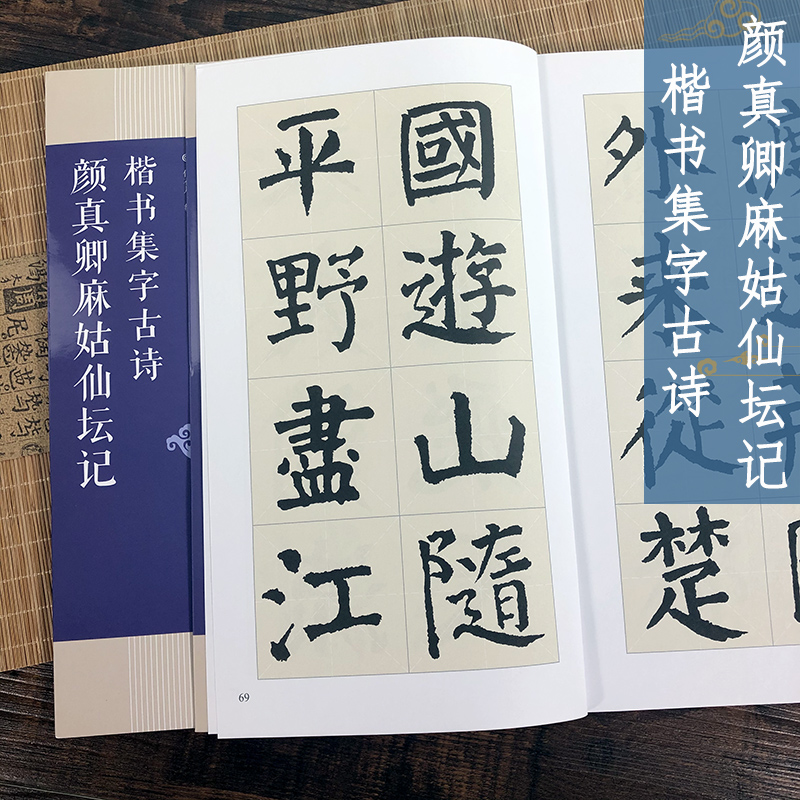 颜真卿麻姑仙坛记
楷书集字古诗
外來從楚
國遊山隨
平野盡江
69
楷书集字古诗
颜真卿麻姑仙坛记